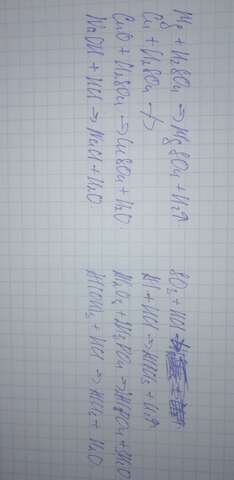 Mg + H₂SO₄ → MgSO₄ + H₂↑
Cu + H₂SO₄ ↛
CuO + H₂SO₄ → CuSO₄ + H₂O
NaOH + HCl → NaCl + H₂O
SO₂ + HCl
Al + HCl → AlCl₃ + H₂↑
Al₂O₃ + H₃PO₄ → AlPO₄ + H₂O
Al(OH)₃ + HCl → AlCl₃ + H₂O